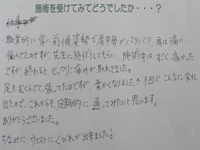 施術を受けてみてどうでしたか・・・?
仕事
職業的に常に前傾姿勢で肩甲骨がバリバリ 肩は痛い…
悩んでたのですが、先生に施術してもらい、施術中はすごく痛かった
ですが、終わると ビックリに痛みが取れてました。
足もむくんでて、張ってたのですが、柔らかくなり 1回でこんなに変化
出たので、これからも定期的に通ってみたいと思います。
ありがとうございました。
ちなみに ウエストに くびれが出来ました!